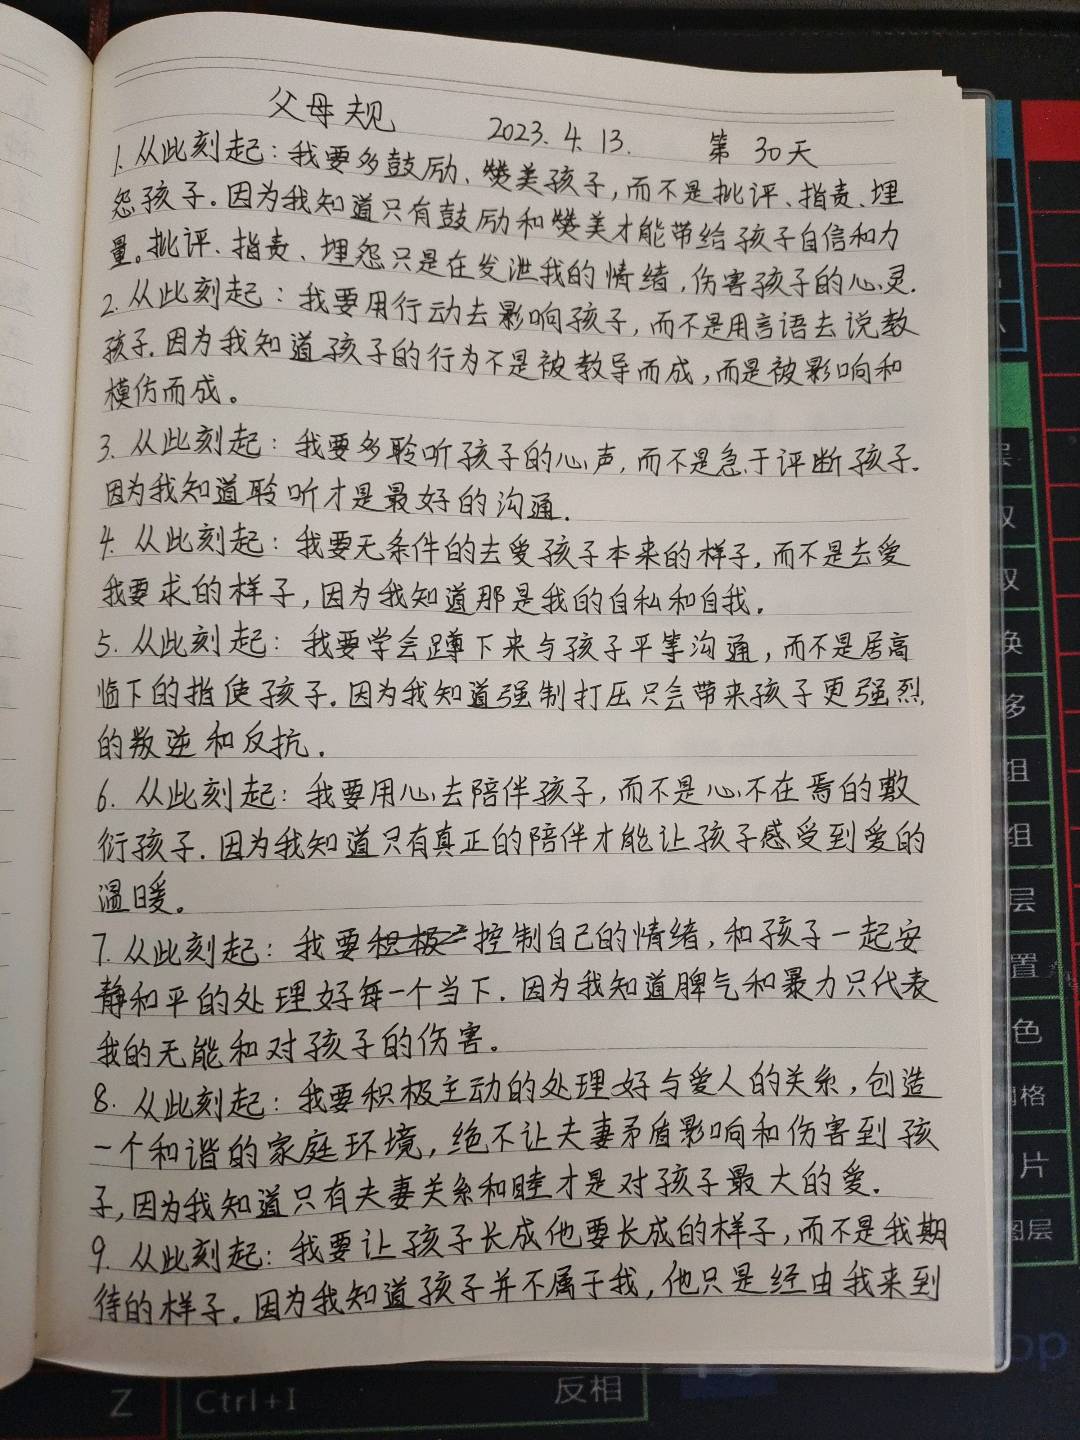 父母规
2023.4.13. 第30天
1. 从此刻起：我要多鼓励、赞美孩子，而不是批评、指责、埋
怨孩子.因为我知道只有鼓励和赞美才能带给孩子自信和力
量。批评、指责、埋怨只是在发泄我的情绪，伤害孩子的心灵.
2. 从此刻起：我要用行动去影响孩子，而不是用言语去说教
孩子.因为我知道孩子的行为不是被教导而成，而是被影响和
模仿而成。
3. 从此刻起：我要多聆听孩子的心声，而不是急于评断孩子.
因为我知道聆听才是最好的沟通.
4. 从此刻起：我要无条件的去爱孩子本来的样子，而不是去爱
我要求的样子，因为我知道那是我的自私和自我.
5. 从此刻起：我要学会蹲下来与孩子平等沟通，而不是居高
临下的指使孩子.因为我知道强制打压只会带来孩子更强烈
的叛逆和反抗.
6. 从此刻起：我要用心去陪伴孩子，而不是心不在焉的敷
衍孩子.因为我知道只有真正的陪伴才能让孩子感受到爱的
温暖。
7. 从此刻起：我要积极控制自己的情绪，和孩子一起安
静和平的处理好每一个当下.因为我知道脾气和暴力只代表
我的无能和对孩子的伤害。
8. 从此刻起：我要积极主动的处理好与爱人的关系，创造
一个和谐的家庭环境，绝不让夫妻矛盾影响和伤害到孩
子，因为我知道只有夫妻关系和睦才是对孩子最大的爱.
9. 从此刻起：我要让孩子长成他要长成的样子，而不是我期
待的样子。因为我知道孩子并不属于我，他只是经由我来到
层
取
取
换
移
组
组
层
置
色
网格
片
图层
Z
Ctrl+I
反相
op